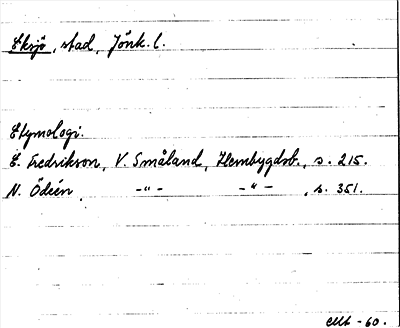 Eksjö, stad, Jönk. l.
Etymologi.
E. Fredrikson, V. Småland, Hembygdsb., s. 215.
N. Ödeén, -"- -"-, s. 351.
-60.